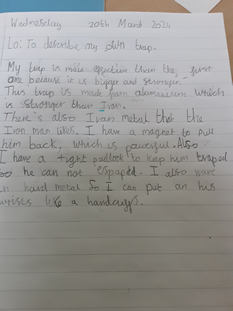 Wednesday 20th March 2024
Lo: To describe my own trap.
My trap is more effective than the first
one because it is bigger and stronger.
This trap is made from aluminium which
is stronger than Iron.
There's also Iron metal that the
Iron man likes. I have a magnet to pull
him back, which is powerful. Also
I have a tight padlock to keep him traped
so he can not espaped. I also have
hard metal so I can put on his
like a handcuffs.